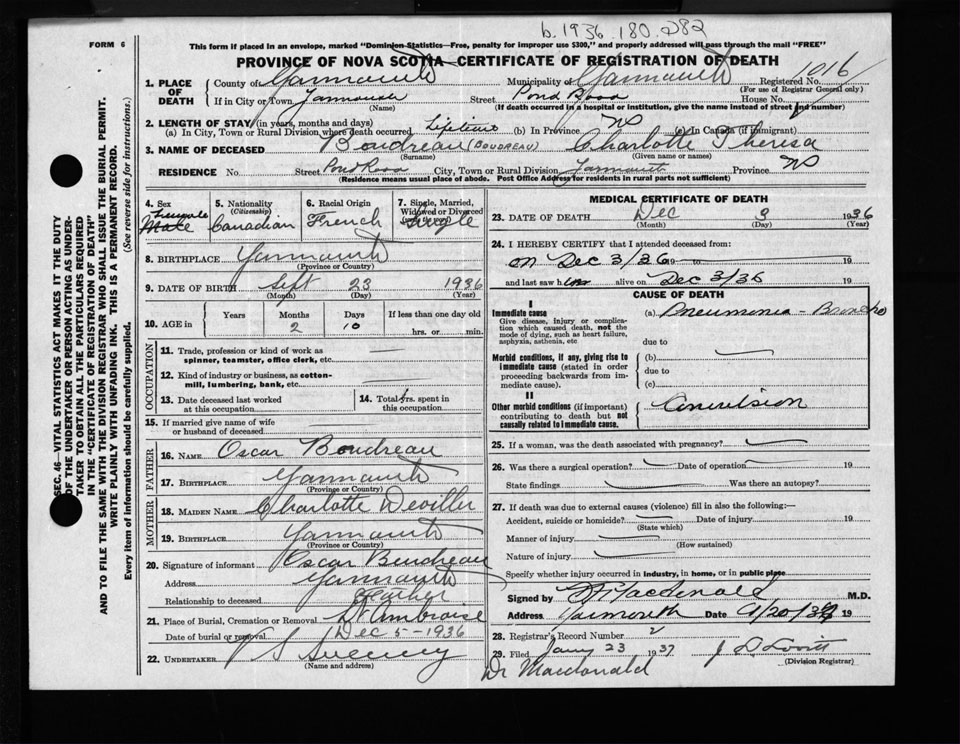 b.1936.180.282
FORM 6
This form if placed in an envelope, marked "Dominion Statistics—Free, penalty for improper use $300," and properly addressed will pass through the mail "FREE"
PROVINCE OF NOVA SCOTIA—CERTIFICATE OF REGISTRATION OF DEATH
1. PLACE OF DEATH
County of Yarmouth Municipality of Yarmouth Registered No. 1016
(For use of Registrar General only)
If in City or Town Yarmouth Street Pond Road House No.
(Name) (If death occurred in a hospital or institution, give the name instead of street and number)
2. LENGTH OF STAY (in years, months and days)
(a) In City, Town or Rural Division where death occurred Lifetime (b) In Province NS (c) In Canada (if immigrant)
3. NAME OF DECEASED Boudreau (BOUDREAU) Charlotte Theresa
(Surname) (Given name or names)
RESIDENCE No. Street Pond Road City, Town or Rural Division Yarmouth Province NS
(Residence means usual place of abode. Post Office Address for residents in rural parts not sufficient)
4. Sex Female Male
5. Nationality (Citizenship) Canadian
6. Racial Origin French
7. Single, Married, Widowed or Divorced Single
8. BIRTHPLACE Yarmouth
(Province or Country)
9. DATE OF BIRTH Sept 23 1936
(Month) (Day) (Year)
10. AGE in Years Months Days If less than one day old
2 10 hrs. or min.
OCCUPATION
11. Trade, profession or kind of work as spinner, teamster, office clerk, etc.
12. Kind of industry or business, as cotton-mill, lumbering, bank, etc.
13. Date deceased last worked at this occupation
14. Total yrs. spent in this occupation
15. If married give name of wife or husband of deceased
FATHER
16. NAME Oscar Boudreau
17. BIRTHPLACE Yarmouth
(Province or Country)
MOTHER
18. MAIDEN NAME Charlotte Deviller
19. BIRTHPLACE Yarmouth
(Province or Country)
20. Signature of informant Oscar Boudreau
Address Yarmouth
Relationship to deceased Father
21. Place of Burial, Cremation or Removal St Ambroise
Date of burial or removal Dec 5-1936
22. UNDERTAKER S Sweeney
(Name and address)
MEDICAL CERTIFICATE OF DEATH
23. DATE OF DEATH Dec 3 1936
(Month) (Day) (Year)
24. I HEREBY CERTIFY that I attended deceased from:
on Dec 3/36 19 to 19
and last saw h alive on Dec 3/36 19
CAUSE OF DEATH
I
Immediate cause
Give disease, injury or complication which caused death, not the mode of dying, such as heart failure, asphyxia, asthenia, etc
(a) Pneumonia - Broncho
due to
Morbid conditions, if any, giving rise to immediate cause (stated in order proceeding backwards from immediate cause).
(b)
due to
(c)
II
Other morbid conditions (if important) contributing to death but not causally related to immediate cause.
Convulsion
25. If a woman, was the death associated with pregnancy?
26. Was there a surgical operation? Date of operation 19
State findings Was there an autopsy?
27. If death was due to external causes (violence) fill in also the following:—
Accident, suicide or homicide? Date of injury 19
(State which)
Manner of injury
(How sustained)
Nature of injury
Specify whether injury occurred in industry, in home, or in public place
Signed by Macdonald M.D.
Address Yarmouth Date 19
28. Registrar's Record Number 2
29. Filed Jany 23 1937 J D Lovitt
(Division Registrar)
Dr Macdonald
SEC. 46—VITAL STATISTICS ACT MAKES IT THE DUTY
OF THE UNDERTAKER OR PERSON ACTING AS UNDER-
TAKER TO OBTAIN ALL THE PARTICULARS REQUIRED
IN THE "CERTIFICATE OF REGISTRATION OF DEATH"
AND TO FILE THE SAME WITH THE DIVISION REGISTRAR WHO SHALL ISSUE THE BURIAL PERMIT.
WRITE PLAINLY WITH UNFADING INK. THIS IS A PERMANENT RECORD.
Every item of information should be carefully supplied. (See reverse side for instructions.)